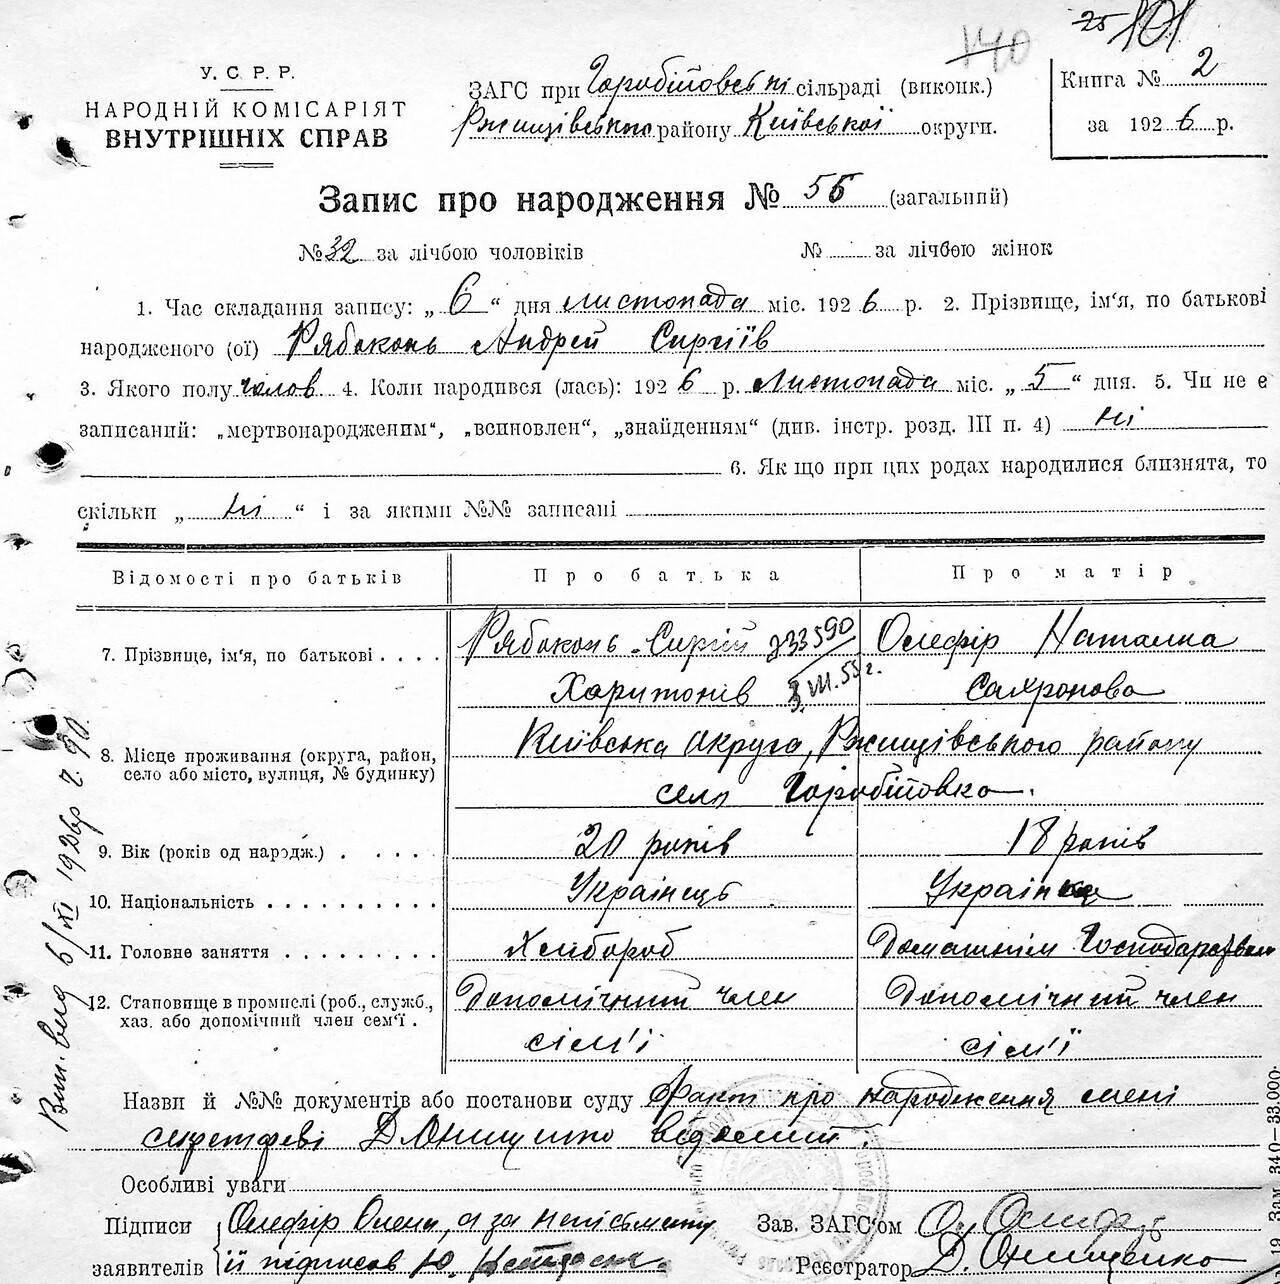 25 101
140
У. С. Р. Р.
НАРОДНІЙ КОМІСАРІЯТ
ВНУТРІШНІХ СПРАВ
ЗАГС при Горобіївські сільраді (виконк.)
Ржищівського району Київської округи.
Книга № 2
за 1926 р.
Запис про народження № 55 (загальний)
№ 32 за лічбою чоловіків № за лічбою жінок
1. Час складання запису: „ 6 “ дня листопада міс. 1926 р. 2. Прізвище, ім‘я, по батькові
народженого (ої) Рябоконь Андрей Сиргіїв
3. Якого полу чолов 4. Коли народився (лась): 1926 р. Листопада міс. „ 5 “ дня. 5. Чи не є
записаний: „мертвонародженим“, „всиновлен“, „знайденням“ (див. інстр. розд. III п. 4) ні
6. Як що при цих родах народилися близнята, то
скільки „ ні “ і за якими №№ записані
Відомості про батьків Про батька Про матір
7. Прізвище, ім‘я, по батькові . . . . Рябоконь Сиргій 233590 Олефір Наталка
Харитонів 3.VIII.55 г. Сахронова
8. Місце проживання (округа, район, Київська округа, Ржищівського району
село або місто, вулиця, № будинку) село Горобіївка.
9. Вік (років од народж.) . . . . . 20 років 18 років
10. Національність . . . . . . . . . . Українець Українка
11. Головне заняття . . . . . . . . . Хлібороб Домашнім Господарством
12. Становище в промислі (роб., служб., Допомічний член Допомічний член
хаз. або допомічний член сем‘ї . сім'ї сім'ї
Назви й №№ документів або постанови суду Факт про народження мені
Д. Онищенко відомий.
Особливі уваги
Підписи Олефір Олена, а за неписьмену
заявителів її підписов Ю.
Зав. ЗАГС‘ом
Реєстратор Д. Онищенко
Вип. вид 6/XI 1926р ч. 90.
19 Зам. 340—33.000.